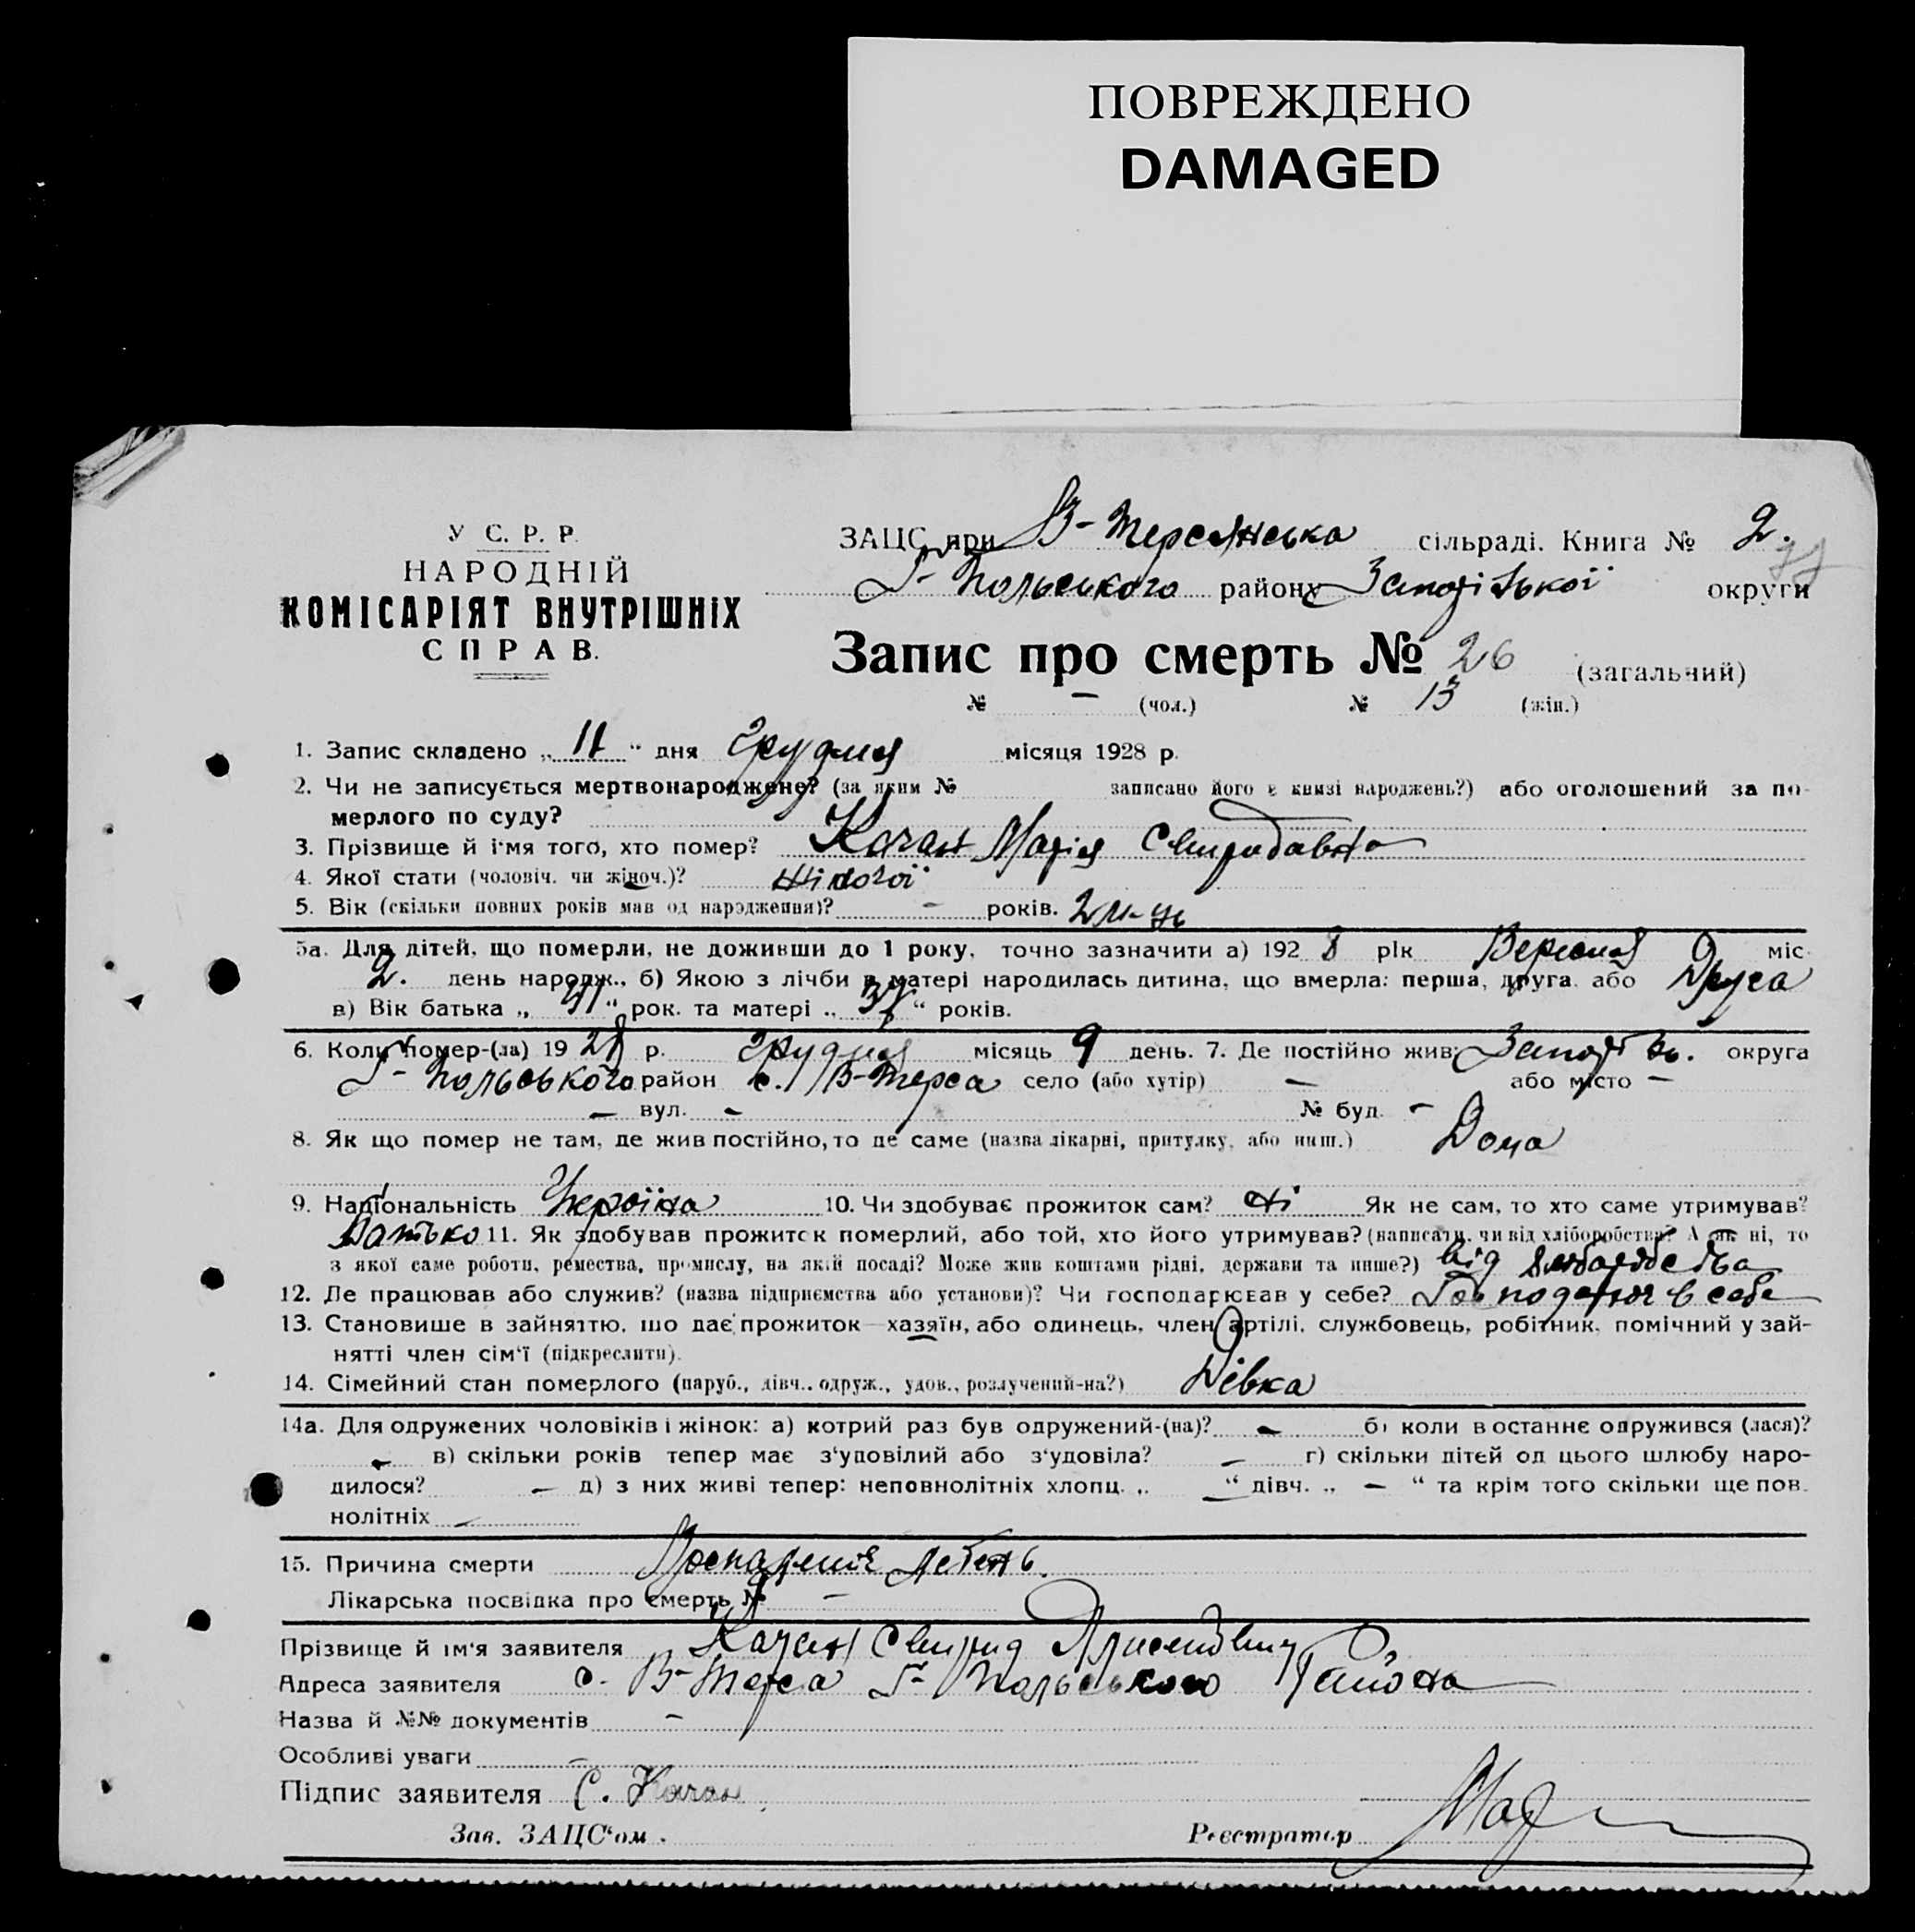 ПОВРЕЖДЕНО
DAMAGED
У С. Р. Р.
НАРОДНІЙ
КОМІСАРІЯТ ВНУТРІШНІХ
СПРАВ.
ЗАЦС при В-Терсянська сільраді. Книга № 2.
Г-Польського району Запорізької округи
Запис про смерть № 26 (загальний)
№ – (чол.) № 13 (жін.)
1. Запис складено „ 11 “ дня Грудня місяця 1928 р.
2. Чи не записується мертвонароджене? (за яким № записано його в книзі народжень?) або оголошений за по-
мерлого по суду?
3. Прізвище й і'мя того, хто помер? Качан Марія Свиридавна
4. Якої стати (чоловіч. чи жіноч.)? Жіночої
5. Вік (скільки повних років мав од народження)? – років. 2 м-ць
5а. Для дітей, що померли, не доживши до 1 року, точно зазначити а) 192 8 рік Вересня міс.
2. день народж., б) Якою з лічби в матері народилась дитина, що вмерла: перша, друга або Друга
в) Вік батька „ 41 “ рок. та матері „ 37 “ років.
6. Коли помер-(ла) 19 28 р. Грудня місяць 9 день. 7. Де постійно жив: округа
Г-Польського район с. В-Терса село (або хутір) – або місто –
– вул. – № буд. –
8. Як що помер не там, де жив постійно, то де саме (назва лікарні, притулку, або инш.) Дома
9. Національність Україна 10. Чи здобуває прожиток сам? Ні Як не сам, то хто саме утримував?
Батько 11. Як здобував прожиток померлий, або той, хто його утримував? (написати, чи від хліборобства? А як ні, то
з якої саме роботи, ремества, промислу, на якій посаді? Може жив коштами рідні, держави та инше?) від
12. Де працював або служив? (назва підприємства або установи)? Чи господарював у себе? в себе
13. Становище в зайняттю, що дає прожиток—хазяїн, або одинець, член артілі, службовець, робітник, помічний у зай-
нятті член сім'ї (підкреслити).
14. Сімейний стан померлого (паруб., дівч., одруж., удов., розлучений-на?) Дівка
14а. Для одружених чоловіків і жінок: а) котрий раз був одружений-(на)? – б) коли в останнє одружився (лася)?
– в) скільки років тепер має з'удовілий або з'удовіла? – г) скільки дітей од цього шлюбу наро-
дилося? – д) з них живі тепер: неповнолітніх хлопц. „ – “ дівч. „ – “ та крім того скільки ще пов.
нолітніх –
15. Причина смерти
Лікарська посвідка про смерть № –
Прізвище й ім'я заявителя Качан Свирид
Адреса заявителя с. В-Терса Г-Польського Району
Назва й №№ документів –
Особливі уваги –
Підпис заявителя С. Качан
Зав. ЗАЦС'ом. Реєстратор